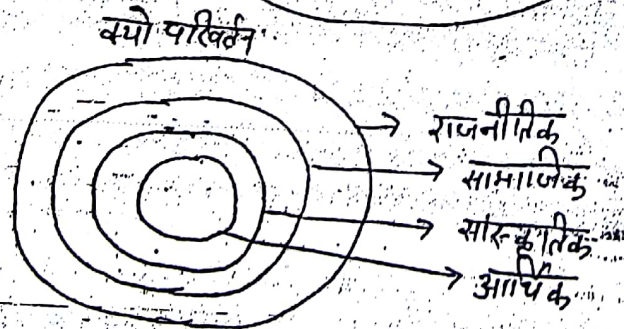 क्यो परिवर्तन
राजनीतिक
सामाजिक
सांस्कृतिक
आर्थिक